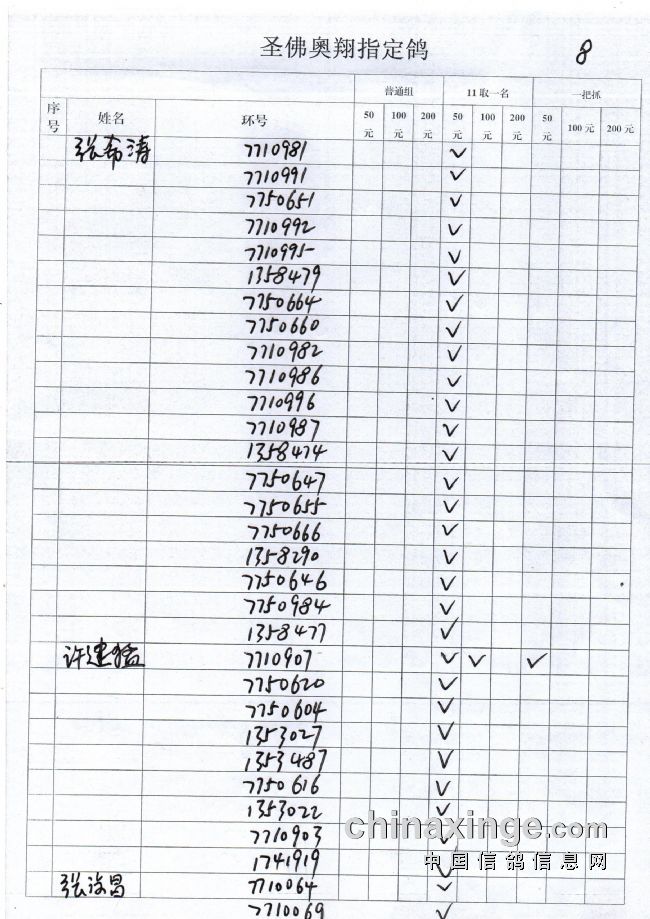 圣佛奥翔指定鸽
8
序号 姓名 环号 普通组 11取一名 一把抓
50元 100元 200元 50元 100元 200元 50元 100元 200元
张希涛 7710981 ✓
7710991 ✓
7750651 ✓
7710992 ✓
7710995 ✓
1358479 ✓
7750664 ✓
7750660 ✓
7710982 ✓
7710986 ✓
7710996 ✓
7710987 ✓
1358474 ✓
7750647 ✓
7750655 ✓
7750666 ✓
1358290 ✓
7750646 ✓
7750984 ✓
1358477 ✓
许建猛 7710907 ✓ ✓ ✓
7750620 ✓
7750604 ✓
1353027 ✓
1353487 ✓
7750616 ✓
1353022 ✓
7710903 ✓
chinaxinge.com
1741919 ✓
中国信鸽信息网
张 昌 7710064 ✓
7710069 ✓